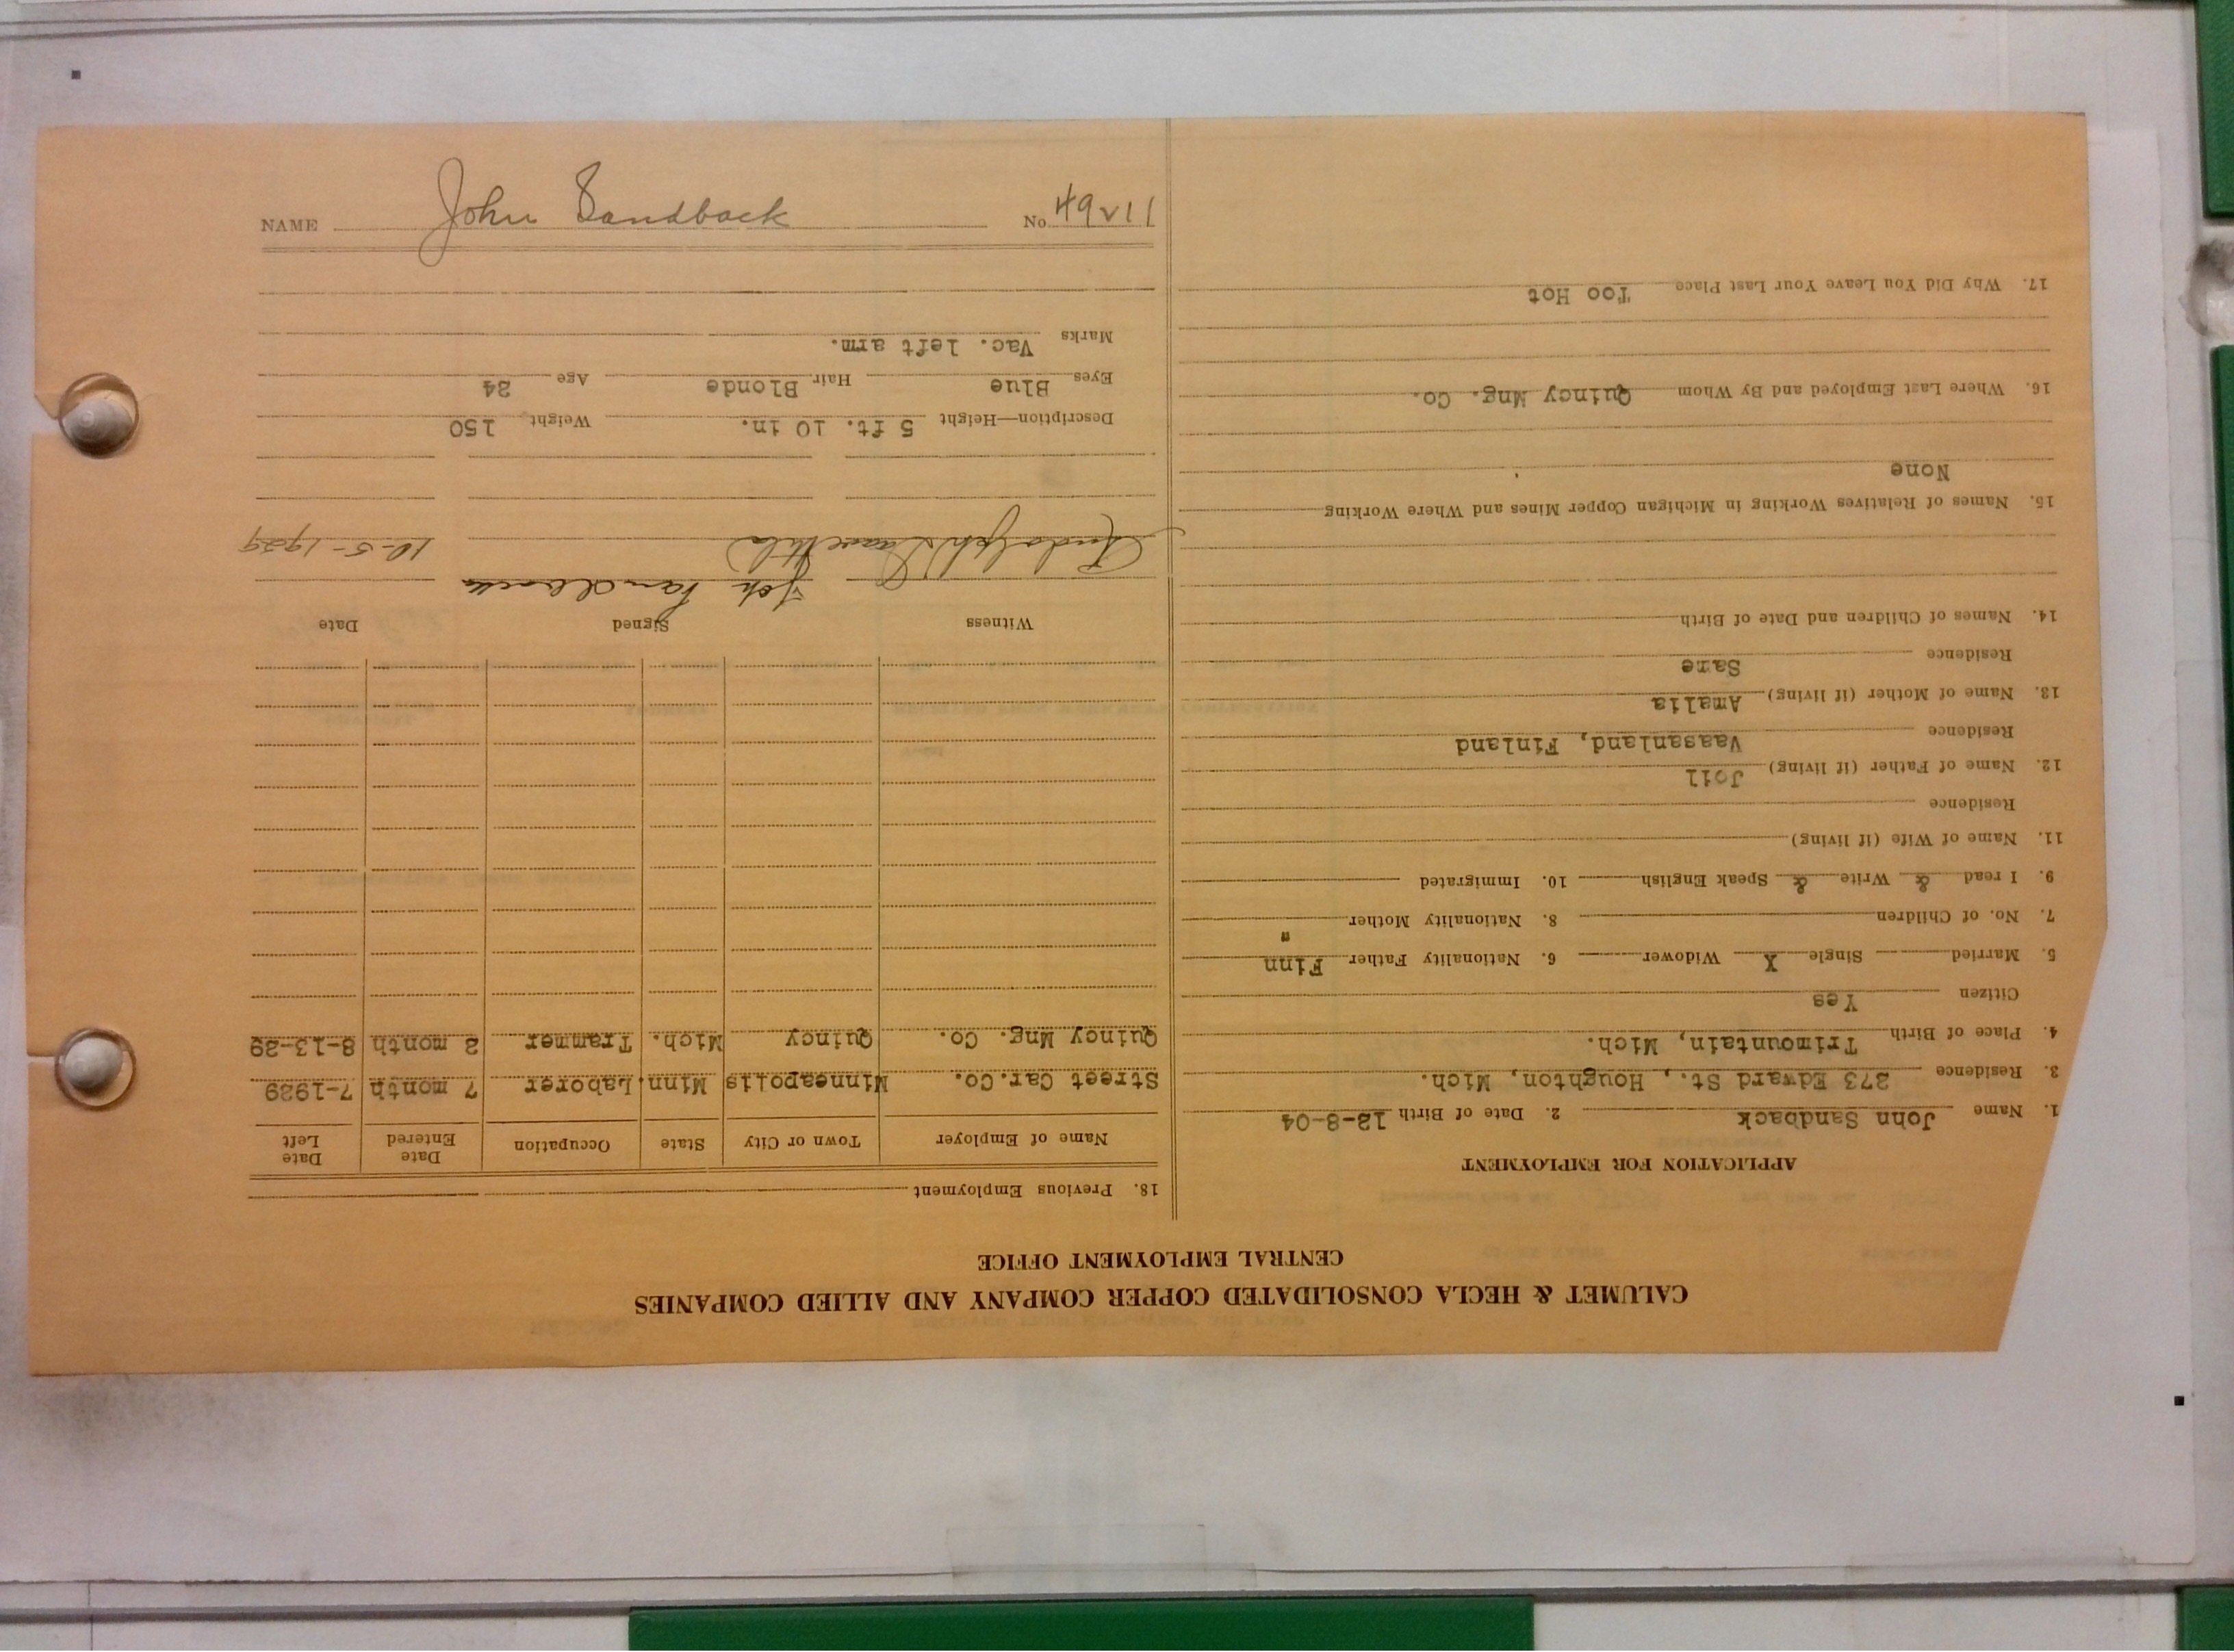 CALUMET & HECLA CONSOLIDATED COPPER COMPANY AND ALLIED COMPANIES
CENTRAL EMPLOYMENT OFFICE
APPLICATION FOR EMPLOYMENT
1. Name John Sandback 2. Date of Birth 12-8-04
3. Residence 273 Edward St., Houghton, Mich.
4. Place of Birth Trimountain, Mich.
Citizen Yes
5. Married Single X Widower 6. Nationality Father Finn
7. No. of Children 8. Nationality Mother "
9. I read & Write & Speak English 10. Immigrated
11. Name of Wife (if living)
Residence
12. Name of Father (if living) Joil
Residence Vaasanland, Finland
13. Name of Mother (if living) Amalia
Residence Same
14. Names of Children and Date of Birth
15. Names of Relatives Working in Michigan Copper Mines and Where Working
None
16. Where Last Employed and By Whom Quincy Mng. Co.
17. Why Did You Leave Your Last Place Too Hot
18. Previous Employment
Name of Employer Town or City State Occupation Date Entered Date Left
Street Car.Co. Minneapolis Minn. Laborer 7 month 7-1929
Quincy Mng. Co. Quincy Mich. Trammer 2 month 8-13-29
Witness Signed Date
John Sandback
10-5-1929
Description—Height 5 ft. 10 in. Weight 150
Eyes Blue Hair Blonde Age 24
Marks Vac. left arm.
NAME John Sandback No. 49211